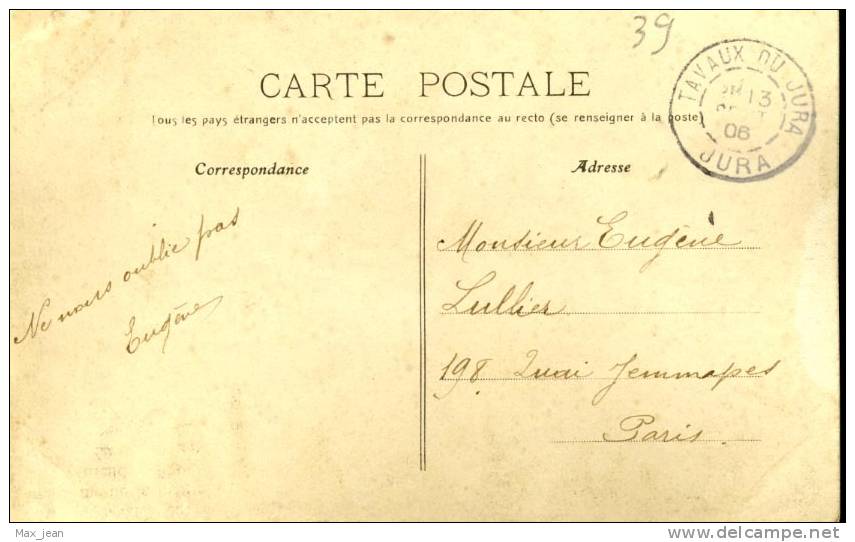 39
CARTE POSTALE
Tous les pays étrangers n'acceptent pas la correspondance au recto (se renseigner à la poste)
TAVAUX DU JURA
13
06
JURA
Correspondance
Adresse
Ne nous oublie pas
Eugène
Monsieur Eugène
Lullier
198 Quai Jemmapes
Paris.
Max_jean
www.delcampe.net